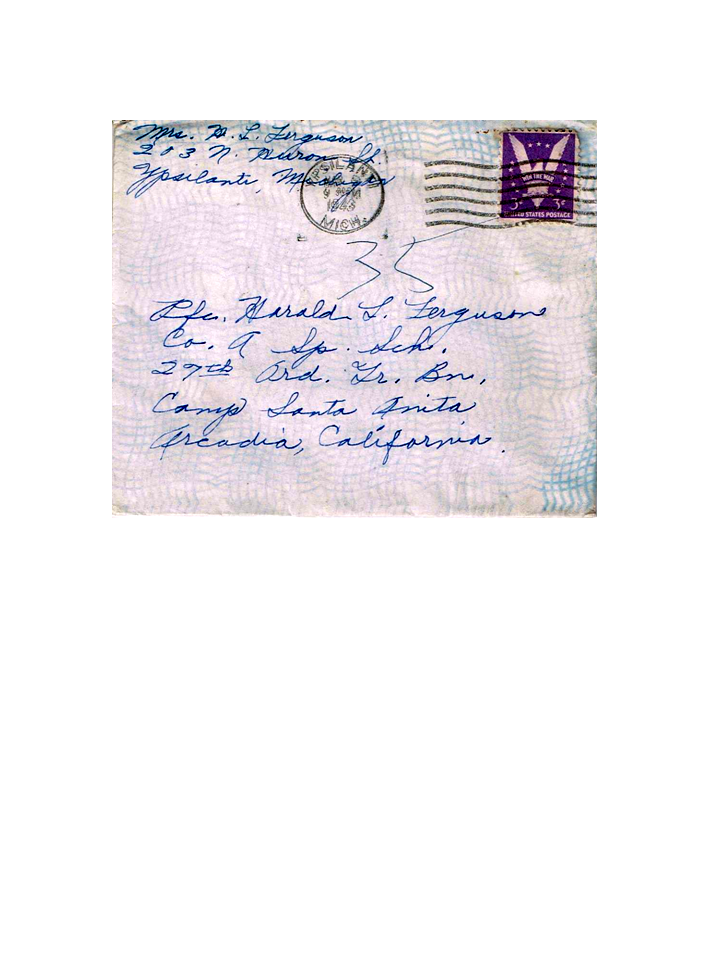 Mrs. H. L. Ferguson
203 N. Huron St.
Ypsilanti, Michigan
YPSILANTI
1943
MICH.
WIN THE WAR
3¢ 3¢
UNITED STATES POSTAGE
35
Pfc. Harald L. Ferguson
Co. A Sp. Sch.
27th Ord. Tr. Bn.
Camp Santa Anita
Arcadia, California.